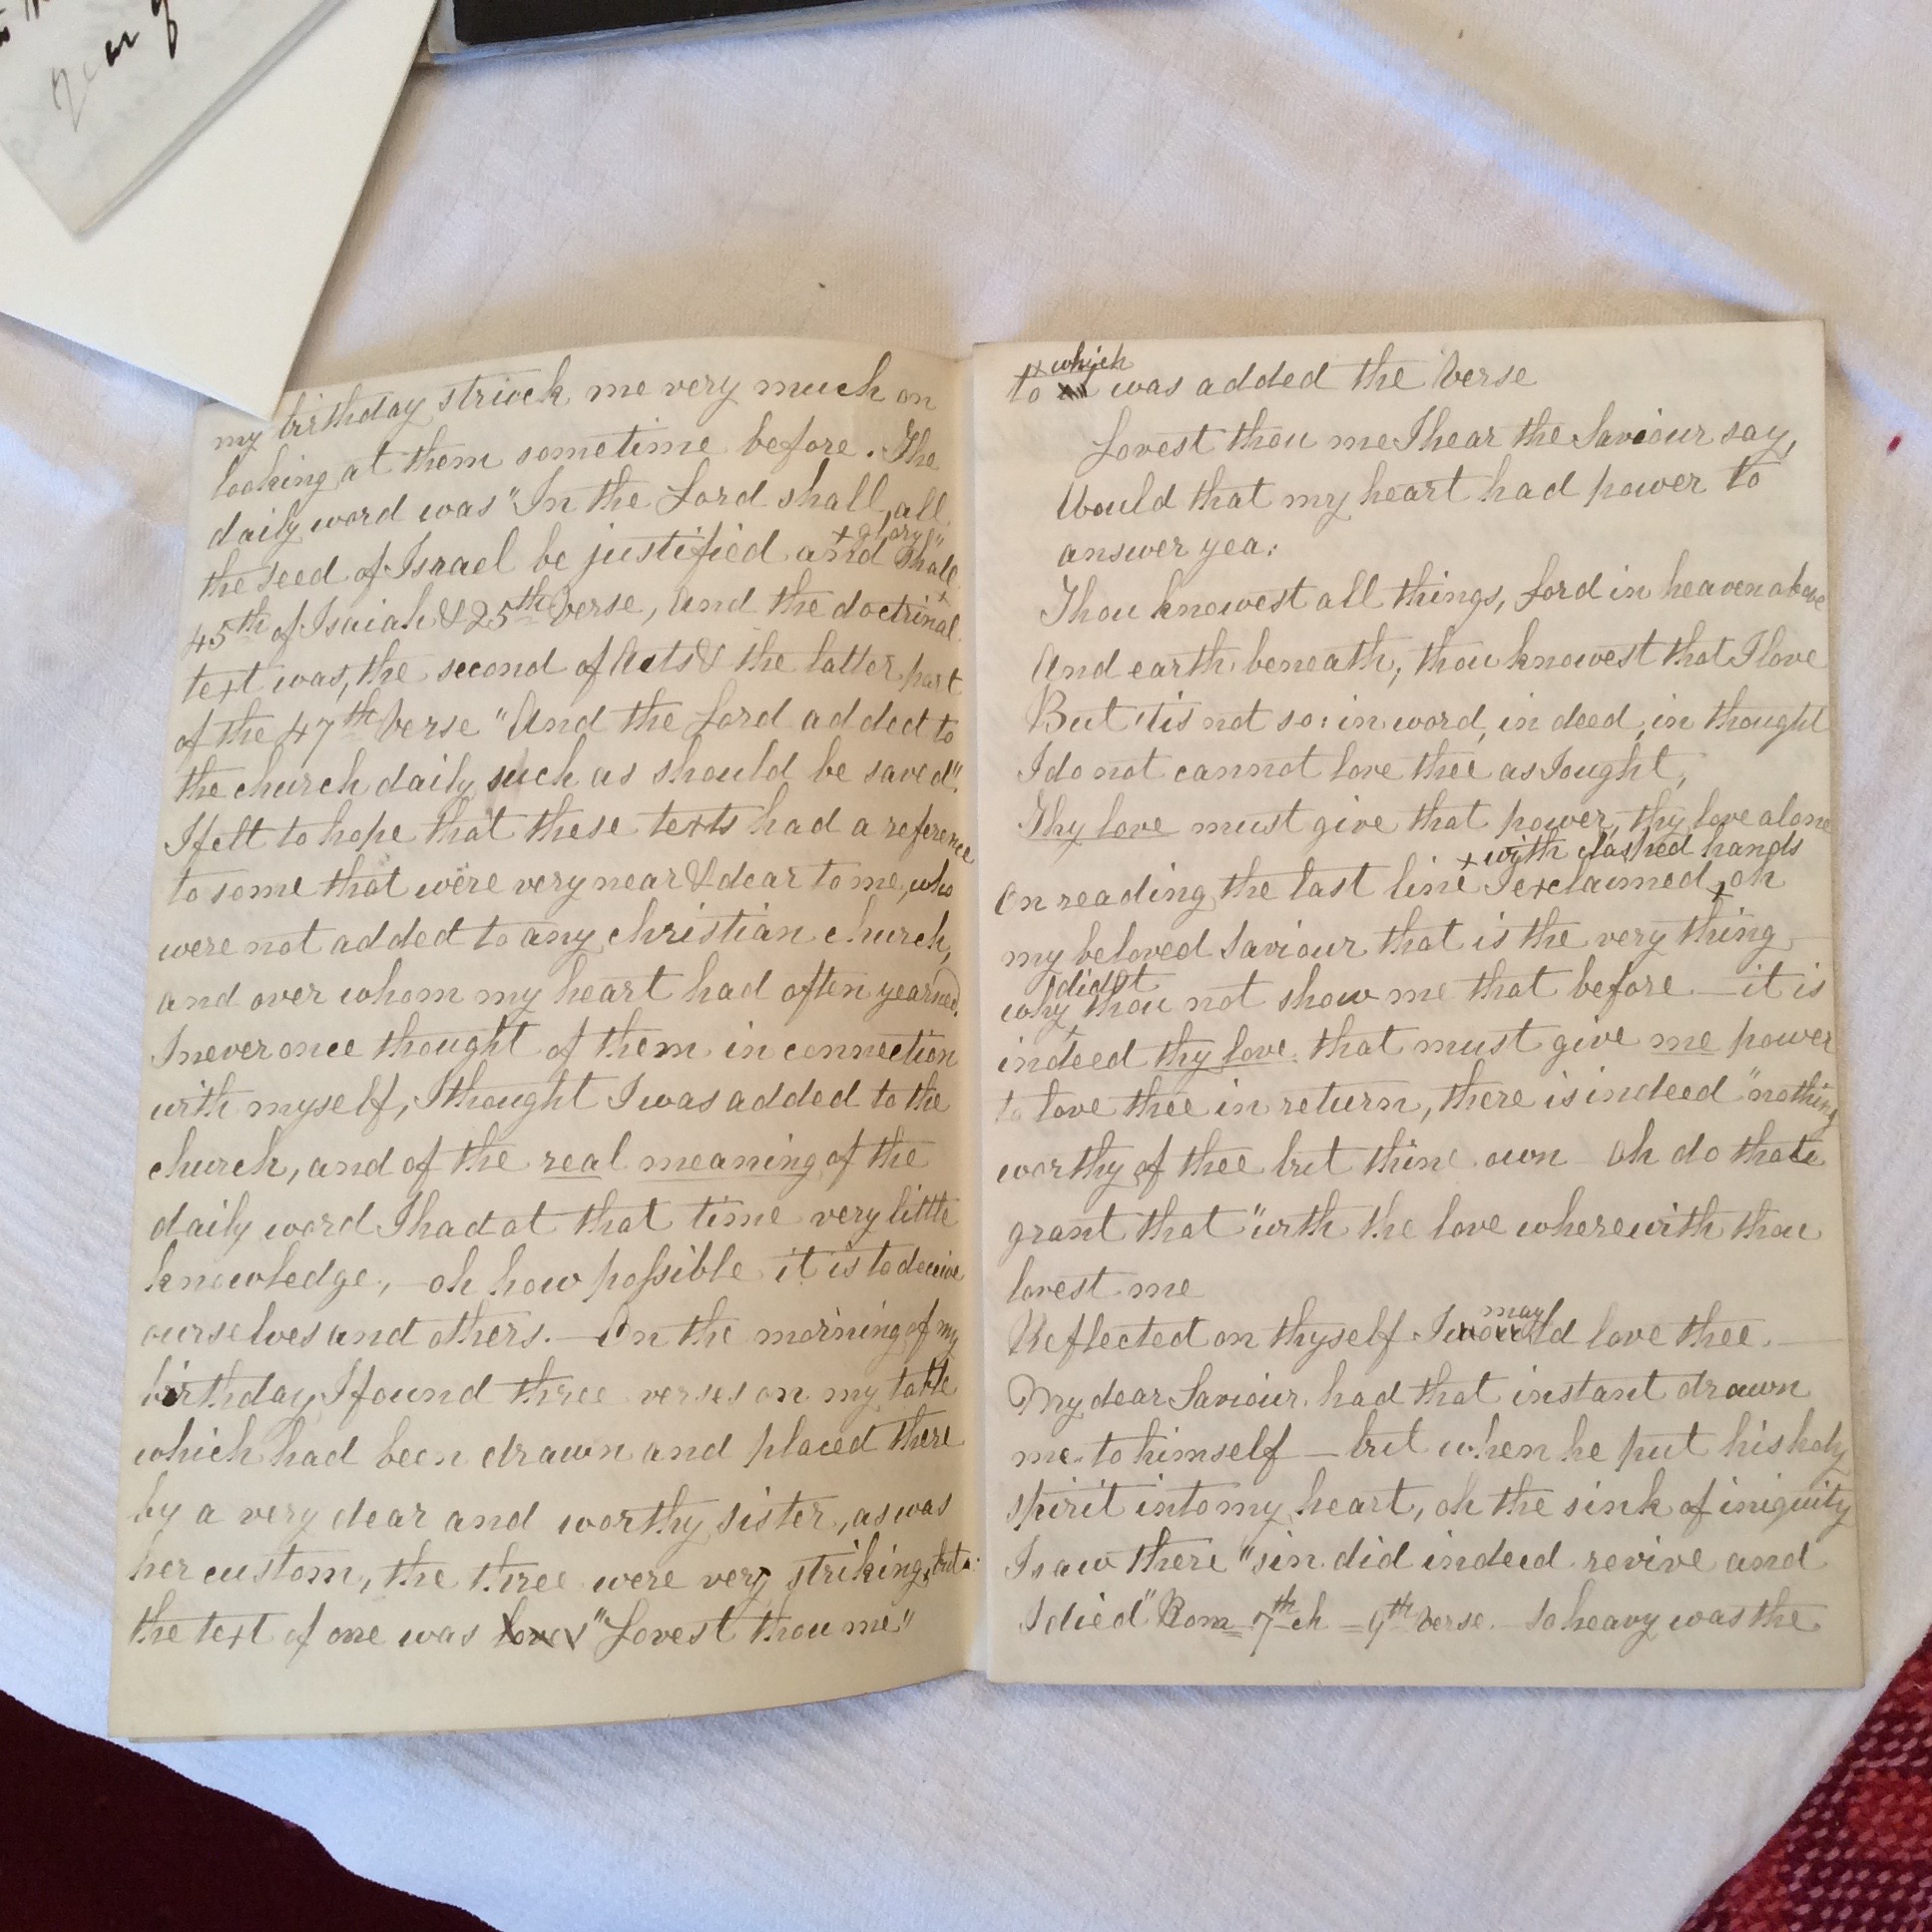 year of
my birthday struck me very much on
looking at them sometime before. The
daily word was "In the Lord shall all
the seed of Israel be justified and shall
+ glory"
45th of Isaiah & 25th Verse, And the doctrinal
text was, the second of Acts & the latter part
of the 47th Verse "And the Lord added to
the church daily such as should be saved".
I felt to hope that these texts had a reference
to some that were very near & dear to me, who
were not added to any christian church,
and over whom my heart had often yearned.
I never once thought of them in connection
with myself, I thought I was added to the
church, and of the real meaning of the
daily word I had at that time very little
knowledge, – oh how possible it is to deceive
ourselves and others. – On the morning of my
birthday I found three verses on my table
which had been drawn and placed there
by a very dear and worthy sister, as was
her custom, the three were very striking, but
the text of one was "Lovest thou me"
+ which
to was added the Verse
Lovest thou me I hear the Saviour say,
Would that my heart had power to
answer yea:
Thou knowest all things, Lord in heaven above
And earth beneath, thou knowest that I love
But 'tis not so: in word, in deed, in thought
I do not cannot love thee as I ought,
Thy love must give that power, thy love alone
+ with clashed hands
On reading the last line I exclaimed + oh
my beloved Saviour that is the very thing
didst
why thou not show me that before – it is
indeed thy love that must give me power
to love thee in return, there is indeed "nothing
worthy of thee but thine own – Oh do thou
grant that "with the love wherewith thou
lovest me
may
Reflected on thyself I would love thee. –
My dear Saviour had that instant drawn
me to himself – but when he put his holy
spirit into my heart, oh the sink of iniquity
I saw there "sin did indeed revive and
I died" Rom 7th ch = 9th Verse. – So heavy was the